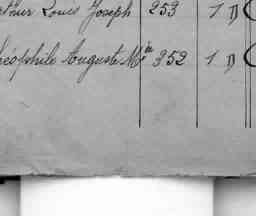 rthur Louis Joseph 253 1 D
héophile Auguste Mie 352 1 D